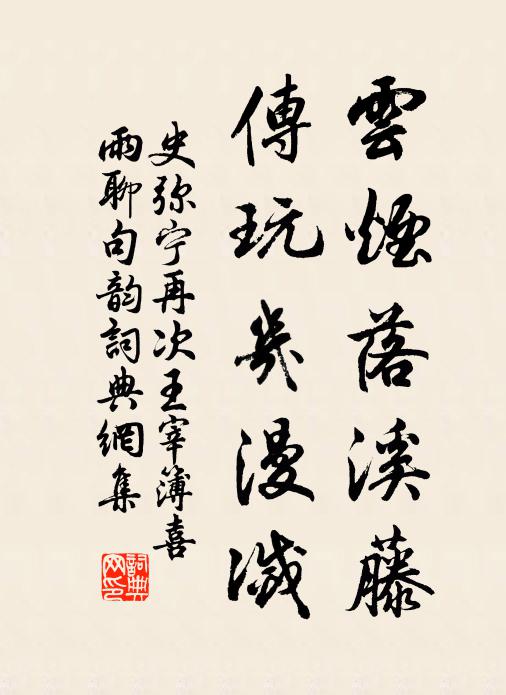 雲煙落溪藤
傳玩幾漫滅
史弥宁再次王宰簿喜
雨聊句韵詞典網集
詞典
网印